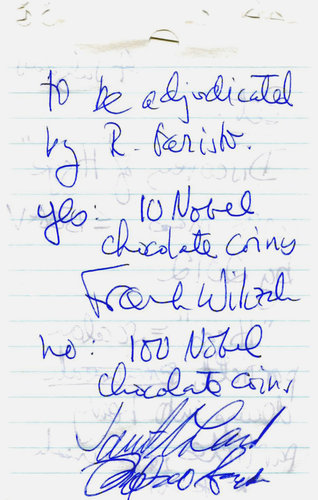 to be adjudicated
by R. Garisto.
yes: 10 Nobel
chocolate coins
Frank Wilczek
no: 100 Nobel
chocolate coins
Janet